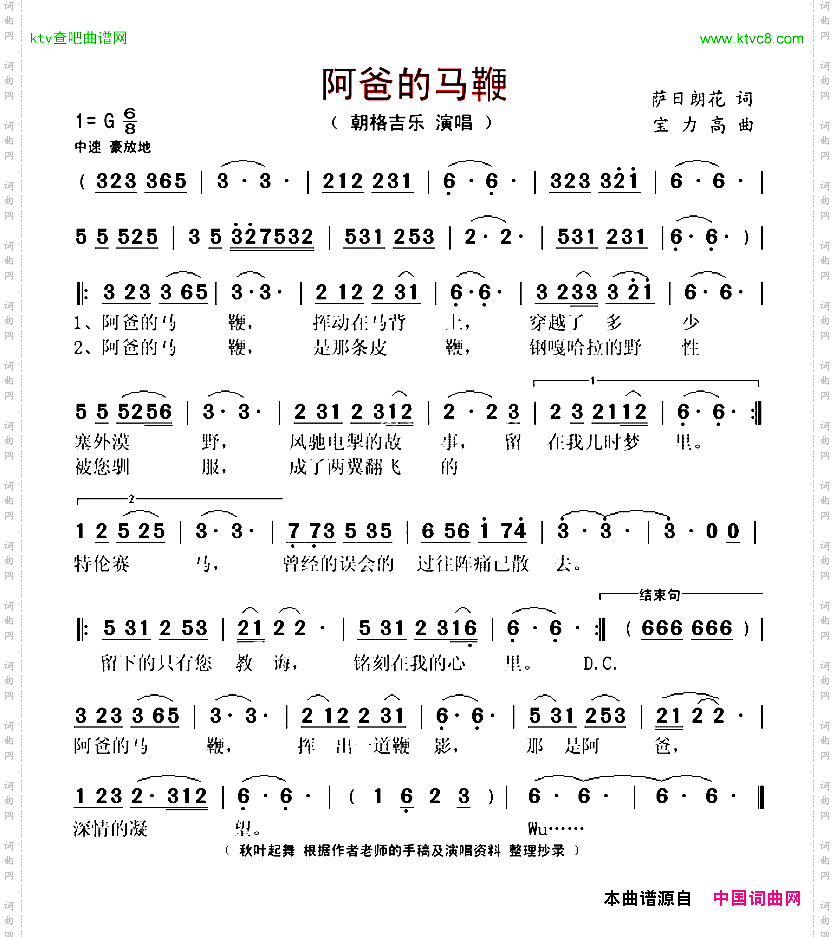 ktv查吧曲谱网 www.ktvc8.com
阿爸的马鞭
1=G 6/8 ( 朝格吉乐 演唱 ) 萨日朗花 词
中速 豪放地 宝力高 曲
( 323 365 | 3· 3· | 212 231 | 6· 6· | 323 321 | 6· 6· |
5 5 525 | 3 5 327532 | 531 253 | 2· 2· | 531 231 | 6· 6· ) |
‖: 3 23 3 65 | 3· 3· | 2 12 2 31 | 6· 6· | 3 233 3 21 | 6· 6· |
1、阿爸的马 鞭, 挥动在马背 上, 穿越了 多 少
2、阿爸的马 鞭, 是那条皮 鞭, 钢嘎哈拉的野 性
1
5 5 5256 | 3· 3· | 2 31 2 312 | 2· 2 3 | 2 3 2112 | 6· 6· :‖
塞外漠 野, 风驰电掣的故 事, 留 在我儿时梦 里。
被您驯 服, 成了两翼翻飞 的
2
1 2 5 25 | 3· 3· | 7 73 5 35 | 6 56 1 74 | 3· 3· | 3· 0 0 |
特伦赛 马, 曾经的误会的 过往阵痛已散 去。
结束句
‖: 5 31 2 53 | 21 2 2· | 5 31 2 316 | 6· 6· :‖ ( 666 666 ) |
留下的只有您 教 诲, 铭刻在我的心 里。 D.C.
3 23 3 65 | 3· 3· | 2 12 2 31 | 6· 6· | 5 31 2 53 | 21 2 2· |
阿爸的马 鞭, 挥 出一道鞭 影, 那 是阿 爸,
1 23 2· 312 | 6· 6· | ( 1 6 2 3 ) | 6· 6· | 6· 6· ‖
深情的凝 望。 Wu……
( 秋叶起舞 根据作者老师的手稿及演唱资料 整理抄录 )
本曲谱源自 中国词曲网